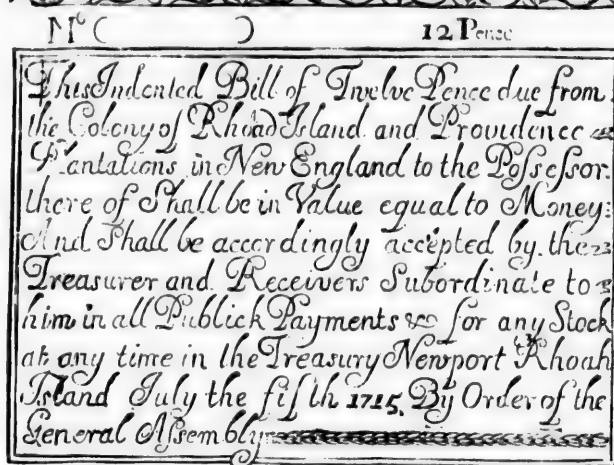 No ( ) 12 Pence
This Indented Bill of Twelve Pence due from
the Colony of Rhoad Island and Providence
Plantations in New England to the Possessor
there of Shall be in Value equal to Money:
And Shall be accordingly accepted by the
Treasurer and Receivers Subordinate to
him in all Publick Payments & for any Stock
at any time in the Treasury Newport Rhoad
Island July the fifth 1715, By Order of the
General Assembly